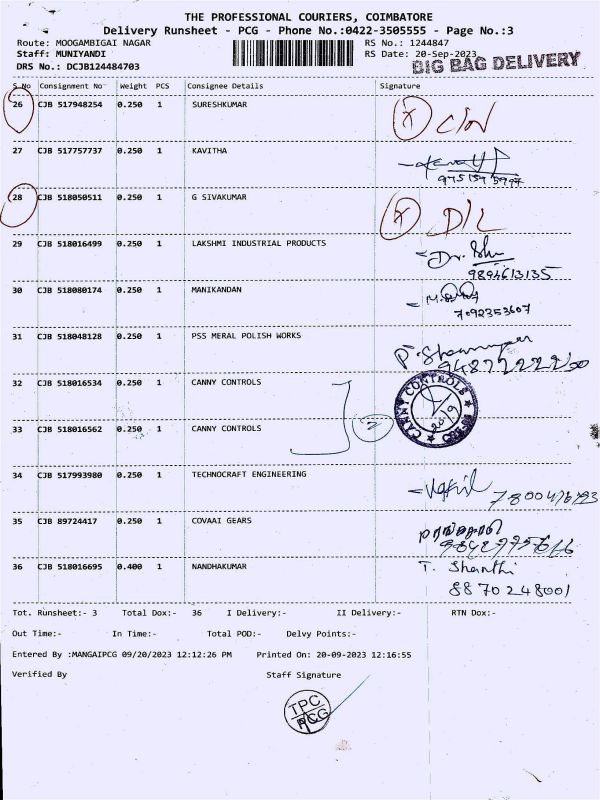 THE PROFESSIONAL COURIERS, COIMBATORE
Delivery Runsheet - PCG - Phone No.:0422-3505555 - Page No.:3
Route: MOOGAMBIGAI NAGAR RS No.: 1244847
Staff: MUNIYANDI RS Date: 20-Sep-2023
DRS No.: DCJB124484703 BIG BAG DELIVERY
S.No Consignment No Weight PCS Consignee Details Signature
26 CJB 517948254 0.250 1 SURESHKUMAR
27 CJB 517757737 0.250 1 KAVITHA
28 CJB 518050511 0.250 1 G SIVAKUMAR D/L
29 CJB 518016499 0.250 1 LAKSHMI INDUSTRIAL PRODUCTS
9894613135
30 CJB 518080174 0.250 1 MANIKANDAN
7092353607
31 CJB 518048128 0.250 1 PSS MERAL POLISH WORKS
32 CJB 518016534 0.250 1 CANNY CONTROLS
CANNY CONTROLS
20/9
33 CJB 518016562 0.250 1 CANNY CONTROLS 2
34 CJB 517993980 0.250 1 TECHNOCRAFT ENGINEERING
35 CJB 89724417 0.250 1 COVAAI GEARS
36 CJB 518016695 0.400 1 NANDHAKUMAR T. Shanthi
8870248001
Tot. Runsheet:- 3 Total Dox:- 36 I Delivery:- II Delivery:- RTN Dox:-
Out Time:- In Time:- Total POD:- Delvy Points:-
Entered By :MANGAIPCG 09/20/2023 12:12:26 PM Printed On: 20-09-2023 12:16:55
Verified By Staff Signature
TPC
PCG